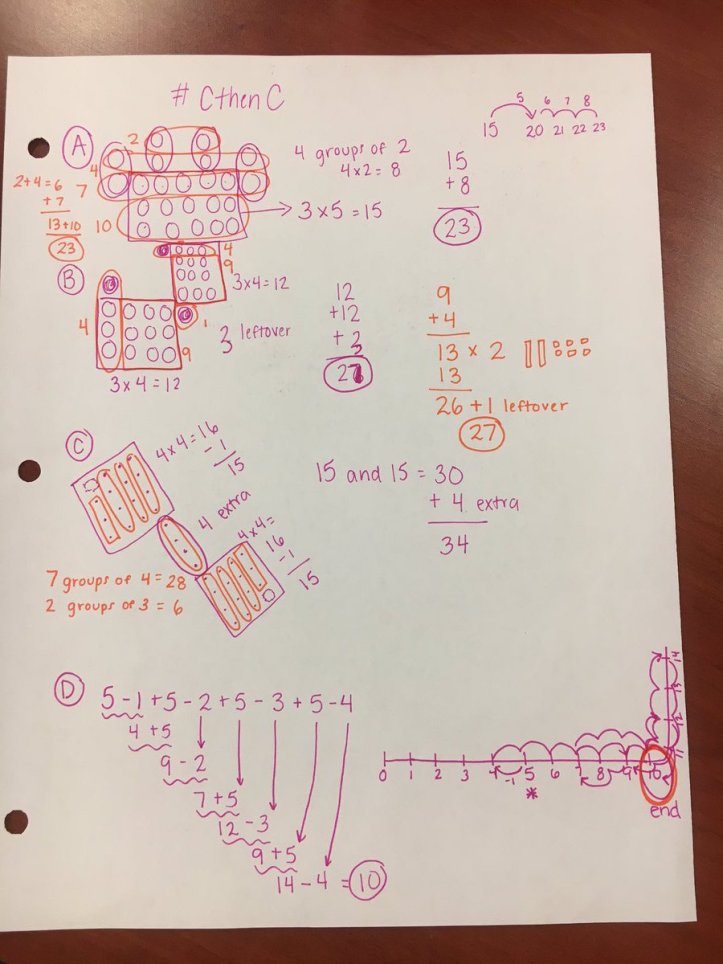 # CthenC
5 6 7 8
15 20 21 22 23
A
2
4
7
10
2+4=6
+7
13+10
23
4 groups of 2
4x2=8
3x5=15
15
+8
23
B
4
9
3x4=12
1
3 leftover
4
9
3x4=12
12
+12
+3
27
9
+4
13 x 2
13
26 +1 leftover
27
C
4x4=16
-1
15
4 extra
4x4=
16
-1
15
7 groups of 4=28
2 groups of 3=6
15 and 15 = 30
+ 4 extra
34
D
5-1+5-2+5-3+5-4
4+5
9-2
7+5
12-3
9+5
14-4 = 10
0 1 2 3 4 -1 5 6 7 8 9 10
*
11
12
13
14
end